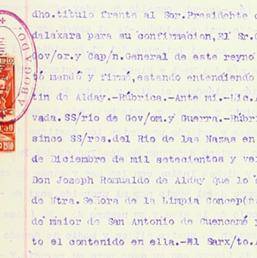 dho.título frente al Sor.Presidente
dalaxara para su confirmacion,El Sr.
Gov/or.y Cap/n.General de este reyno
só mandó y firmó,estando entendiendo
tin de Alday.-Rúbrica.-Ante mi.-Lic.
vada.SS/rio de Gov/om.y Guerra.-Rúbri
sinco SS/ros.del Rio de las Nazas en
de Diciembre de mil setecientos y ve
Don Joseph Romualdo de Alday que lo
de Ntra. Señora de la Limpia Concep(n
de maior de San Antonio de Cuencamé y
to el contenido en ella.-El Sarx/to.
ABOGADO